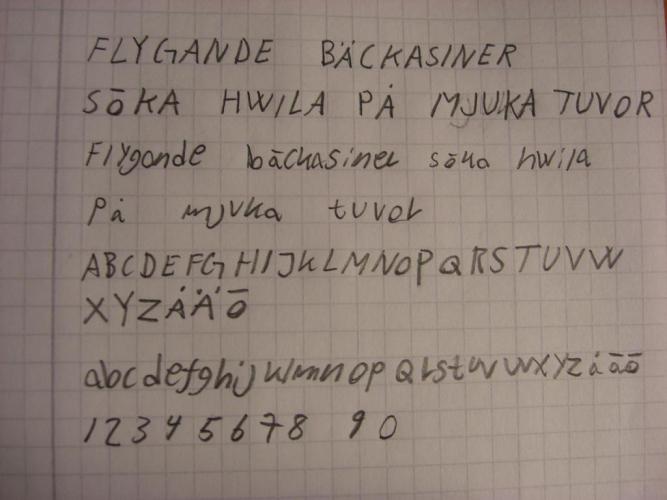 FLYGANDE BÄCKASINER
SÖKA HWILA PÅ MJUKA TUVOR
Flygande bäckasiner söka hwila
på mjuka tuvor
ABCDEFGHIJKLMNOPQRSTUVW
XYZÅÄÖ
abcdefghijklmnopqrstuvwxyzåäö
12345678 90